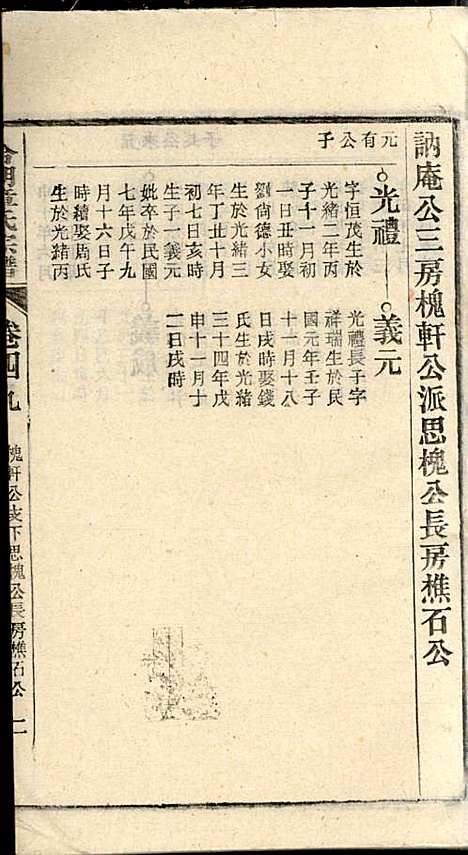 訥庵公三房槐軒公派思槐公長房樵石公
元有公子
光禮
字恒茂生於
光緒二年丙
子十一月初
一日丑時娶
劉尙德小女
生於光緒三
年丁丑十月
初七日亥時
生子一義元
妣卒於民國
七年戊午九
月十六日子
時續娶周氏
生於光緒丙
義元
光禮長子字
祥瑞生於民
國元年壬子
十一月十八
日戌時娶錢
氏生於光緒
三十四年戊
申十一月十
二日戌時
氏宗譜
卷四九
槐軒公支下思槐公長房樵石公